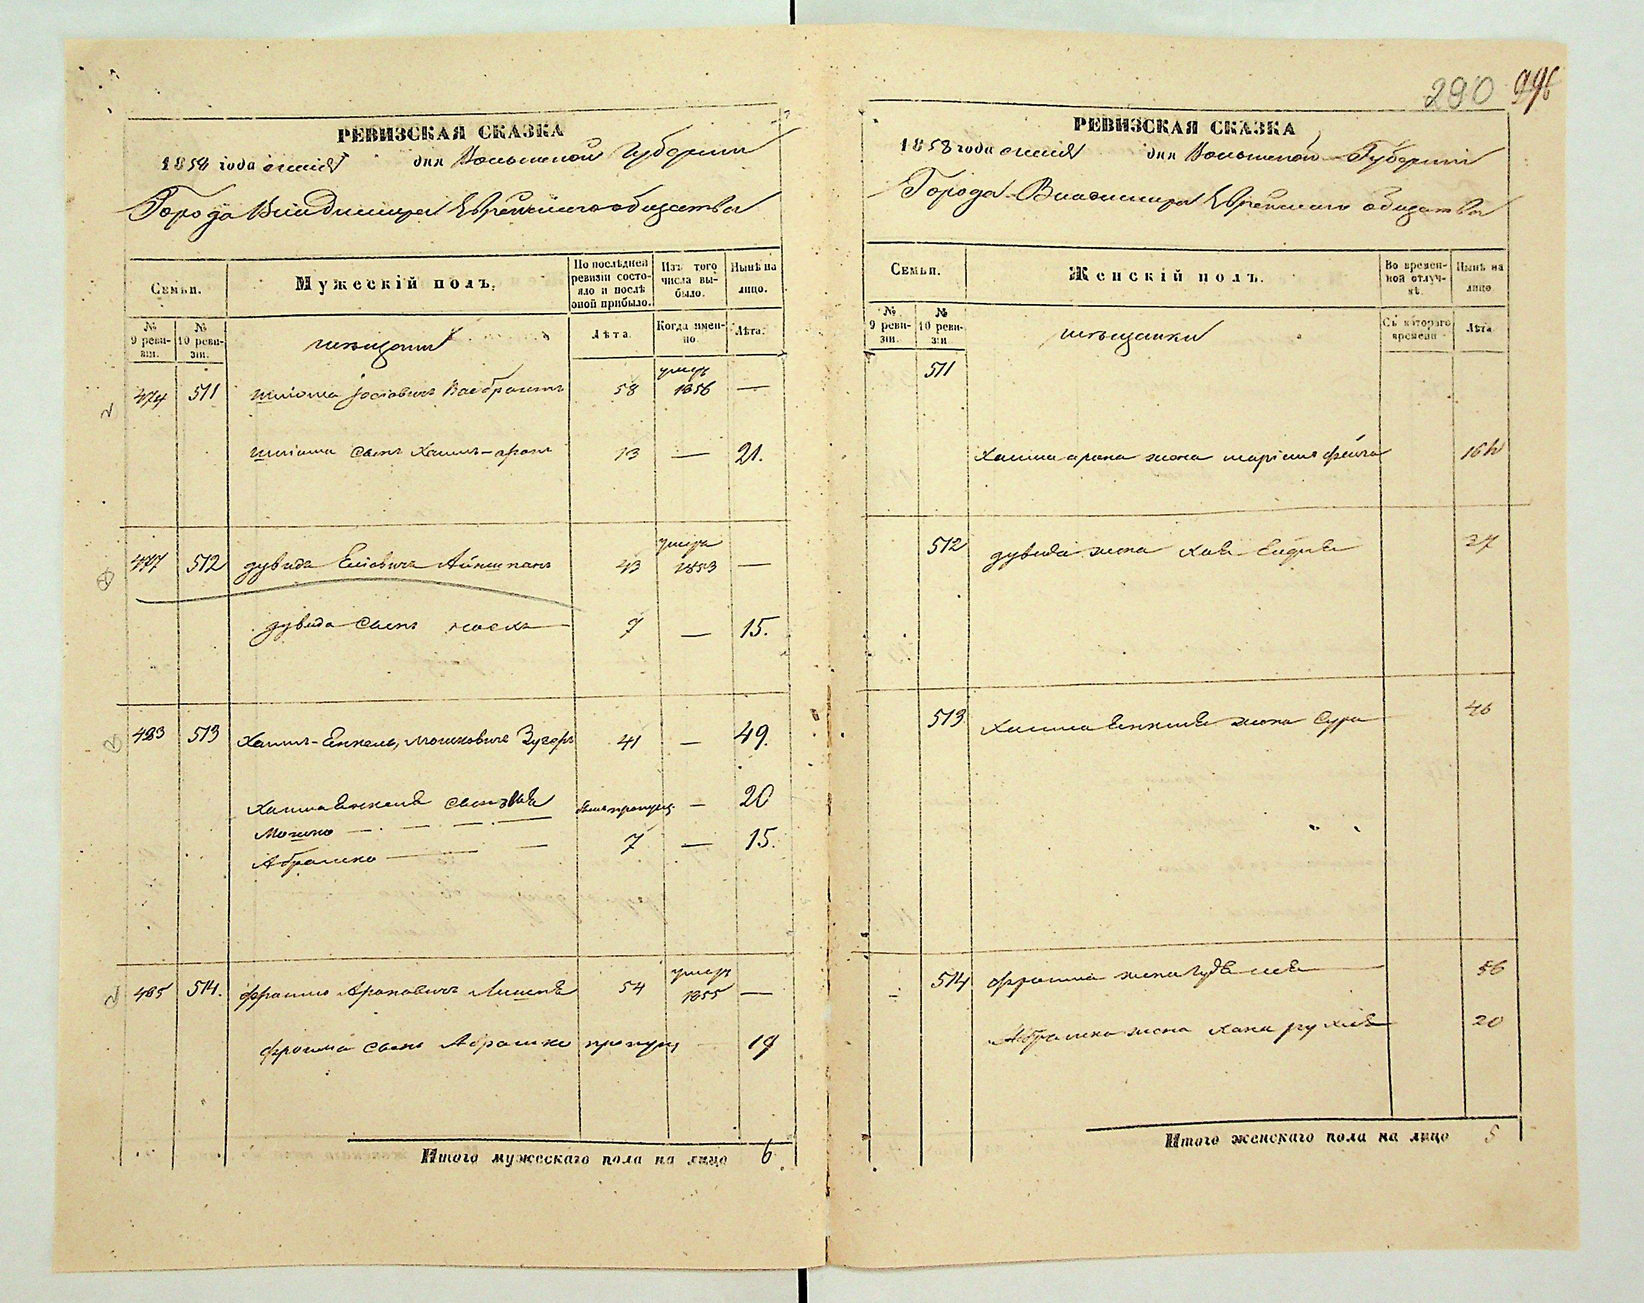 290 996
РЕВИЗСКАЯ СКАЗКА
1858 года дня Волынской Губернии
Города Владимира Еврейского общества
Семьи.
Мужескій полъ.
По послѣдней ревизіи состояло и послѣ оной прибыло.
Изъ того числа выбыло.
Нынѣ на лицо.
№ 9 ревизіи.
№ 10 ревизіи.
мещани
Лѣта.
Когда именно.
Лѣта.
умеръ
474 511 Шліома Іосіовичъ 58 1856 —
Шліома сынъ Хаимъ-аронъ 13 — 21.
умеръ
477 512 Дувидъ Айншпанъ 43 1853 —
Дувида сынъ 7 — 15.
483 513 Хаимъ-Енкель, Мошковичъ Зугеръ 41 — 49.
Хаима Енкеля сыновья — 20
Мошко
Абрамко 7 — 15.
умеръ
485 514. Фроимъ Ароновичъ 54 1855 —
Фроима сынъ Абрамко 19
Итого мужескаго пола на лицо 6
РЕВИЗСКАЯ СКАЗКА
1858 года дня Волынской Губерніи
Города Владимира Еврейского общества
Семьи.
Женскій полъ.
Во временной отлучкѣ.
Нынѣ на лицо
№ 9 ревизіи.
№ 10 ревизіи
мещанки
Съ котораго времени
Лѣта.
511
Хаима арона жена фейга 16
512 Дувида жена Хая 37
513. Хаима Енкеля жена Сура 46
514 Фроима жена 56
Абрамка жена Хана рухля 20
Итого женскаго пола на лицо 5